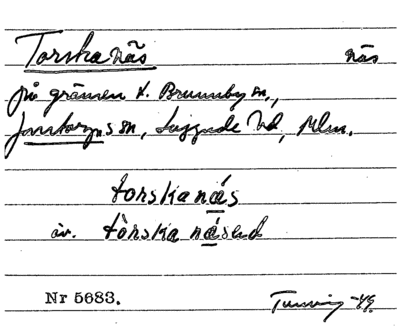 Torskanäs näs
på gränsen t. Brunnby sn.,
Jonstorps sn, Luggude hd, Mlm.
torskanäs
äv. tòrska näsend
Nr 5683.